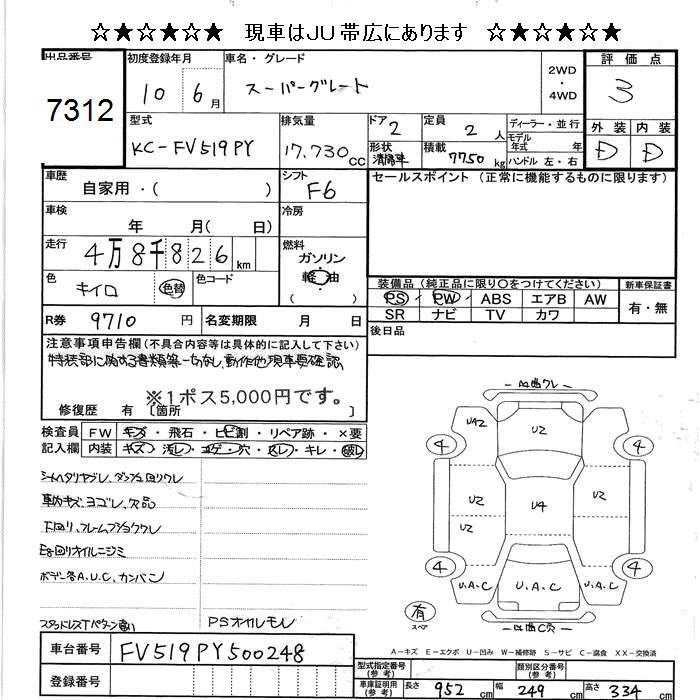 ☆★☆★☆★ 現車はJU帯広にあります ☆★☆★☆★
出品番号
7312
初度登録年月
10 6月
車名・グレード
スーパーグレート
2WD
・
4WD
評価点
3
型式
KC-FV519PY
排気量
17.730cc
ドア 2
形状
清掃車
定員 2人
積載 7750kg
ディーラー・並行
モデル
年式 年
ハンドル 左・右
外装 内装
D D
車歴
自家用・( )
シフト
F6
セールスポイント(正常に機能するものに限ります)
車検
年 月( 日)
冷房
走行
4万8千826km
燃料
ガソリン
・
軽油
( )
色
キイロ 色替
色コード
装備品(純正品に限り○をつけてください)
PS PW ABS エアB AW
SR ナビ TV カワ
新車保証書
有・無
R券 9710円
名変期限 月 日
後日品
注意事項申告欄(不具合内容等は具体的に記入して下さい)
特装部に関する書類等一切なし、動作他現車要確認
※1ポス5,000円です。
修復歴 有 [箇所 ]
検査員
記入欄
FW キズ・飛石・ヒビ割・リペア跡・×要
内装 キズ・汚レ・コゲ・穴・スレ・キレ・破レ
シートヘタリヤブレ、ダッシュ回りワレ
車内キズ、ヨゴレ、欠品
下回り、フレームブショクワレ
Eg回りオイルニジミ
ボデー各A.U.C、カンバン
スタッドレスTパターン違い
PSオイルモレ
凹曲ワレ
UA2 U2
4 4
U2 U4 U2
U2
4 4
U.A.C U.A.C U.A.C
有
スペア
凹曲C穴
A-キズ E-エクボ U-凹み W-補修跡 S-サビ C-腐食 XX-交換済
車台番号 FV519PY500248
登録番号
型式指定番号
(参考)
類別区分番号
(参考)
車庫証明用
(参考)
長さ 952cm 幅 249cm 高さ 334cm